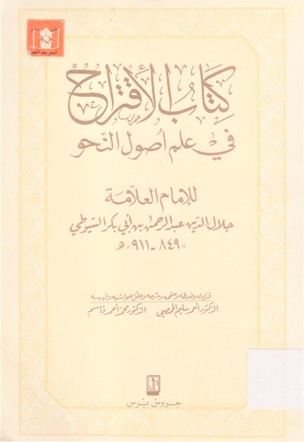 كتاب الاقتراح
في علم أصول النحو
للإمام العلامة
جلال الدين عبد الرحمن بن أبي بكر السيوطي
«٨٤٩ - ٩١١» هـ
الدكتور أحمد سليم الحمصي الدكتور محمد أحمد قاسم
جروس برس